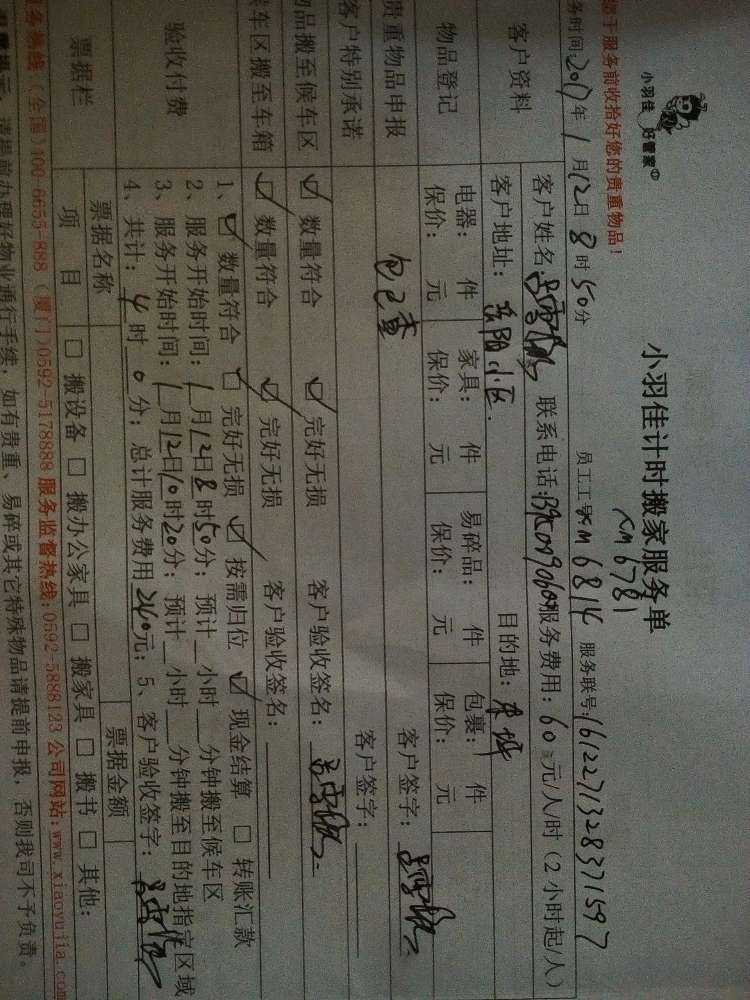 小羽佳 好管家
小羽佳计时搬家服务单
XM6781
于服务前收拾好您的贵重物品！
务时间：2017年1月12日8时50分 员工工号XM6814 服务联号：1612271328371597
客户资料
客户姓名： 联系电话： 服务费用：60元/人/时（2小时起/人）
客户地址： 小区. 目的地：
物品登记
电器： 件 家具： 件 易碎品： 件 包裹： 件
保价： 元 保价： 元 保价： 元 保价： 元
贵重物品申报
包已查 客户签字：
客户特别承诺
客户签字：
品搬至候车区
☑ 数量符合 ☑ 完好无损 客户验收签名：
车区搬至车箱
☑ 数量符合 ☑ 完好无损 客户验收签名：
验收付费
1、☑ 数量符合 ☑ 完好无损 ☑ 按需归位 ☑ 现金结算 □ 转账汇款
2、服务开始时间：1月12日8时50分；预计 小时 分钟搬至候车区
3、服务开始时间：1月12日10时20分；预计 小时 分钟搬至目的地指定区域
4、共计：4时0分；总计服务费用240元；5、客户验收签字：
票据栏
票据名称 票据金额
项目 □ 搬设备 □ 搬办公家具 □ 搬家具 □ 搬书 □ 其他：
服务热线（全国）100-6655-888（厦门）0592-5178888 服务监督热线：0592-5888123 公司网站：www.xiaoyujia.com
请提前办理好物业通行手续，如有贵重、易碎或其它特殊物品请提前申报，否则我司不予负责。